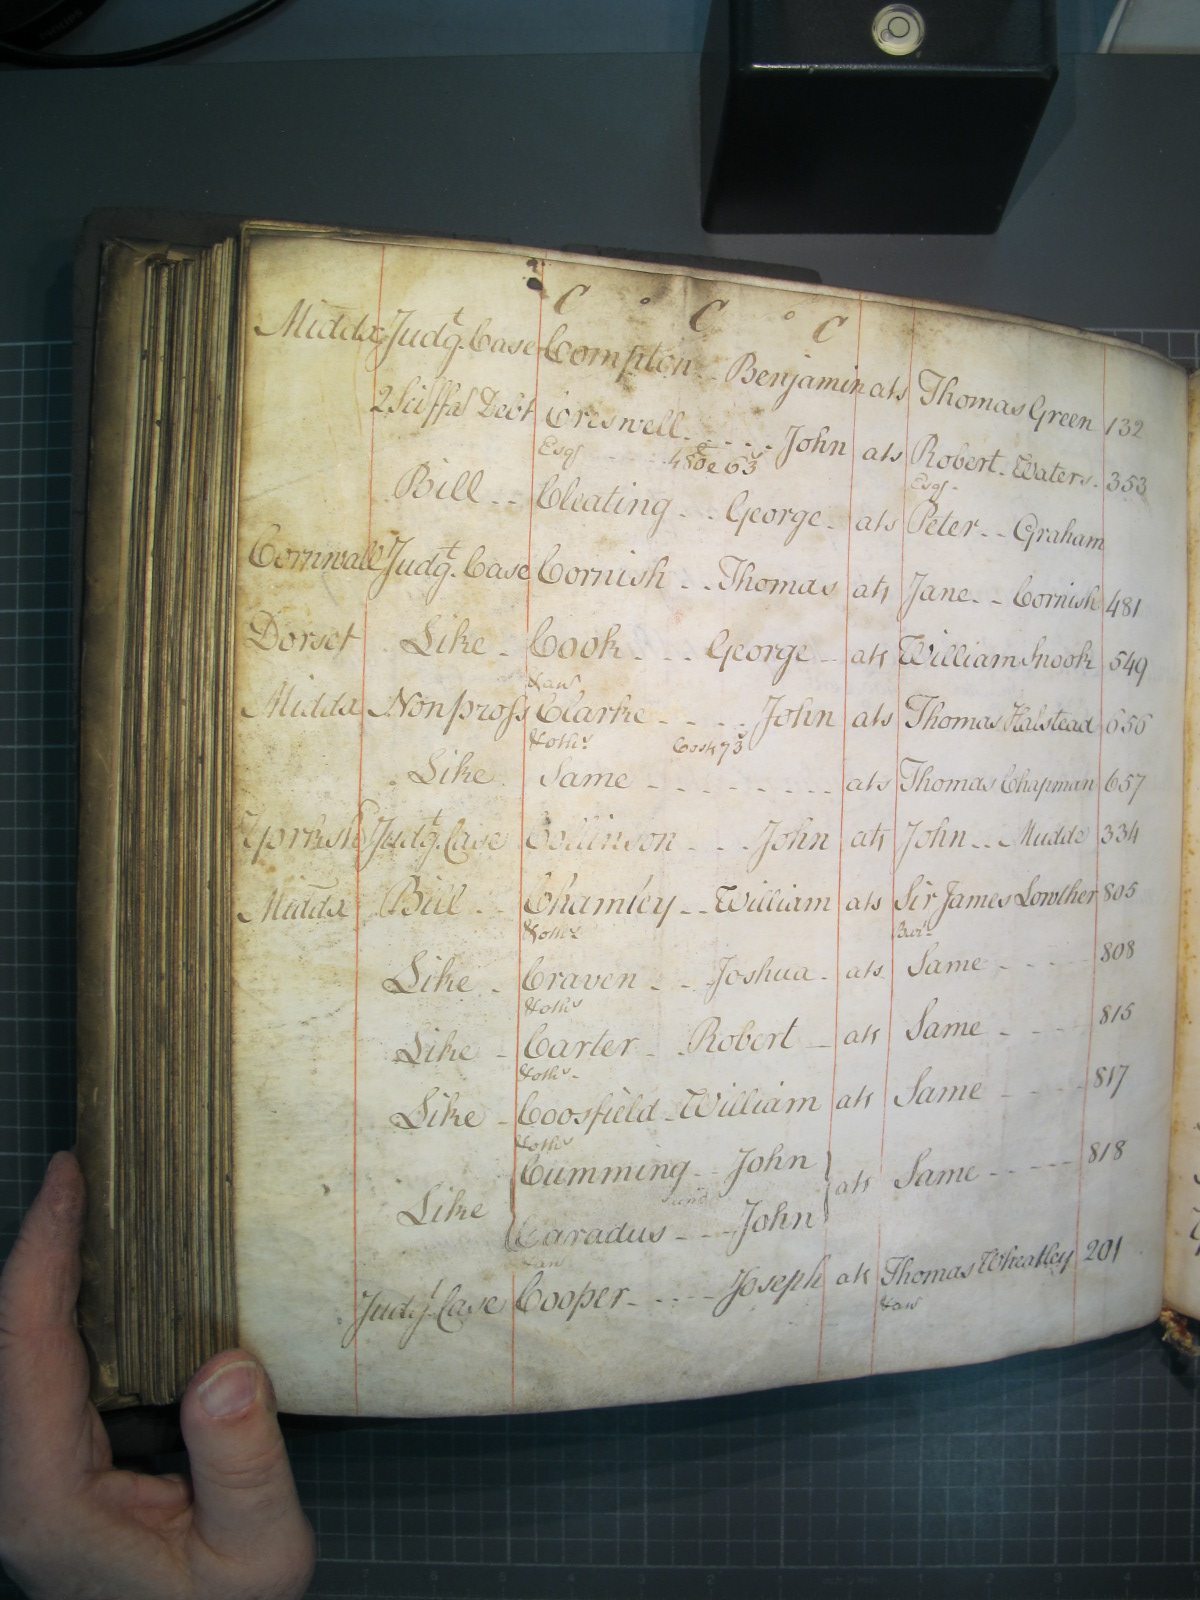 C C C
Midda Judgt. Case Compton - - Benjamin ats Thomas Green 132
2 Sciffas Debt Creswell - - - - John ats Robert - Waters - 353
Esqr Esqr -
Bill - - Cleating - - George - ats Peter - - Graham
Cornwall Judgt. Case Cornish - - Thomas ats Jane - - Cornish 481
Dorset Like - Cook - - - George - ats William Snook 549
& aur
Midda Nonpross Clarke - - - - John ats Thomas Halstead 656
& othrs
Like Same - - - - - - - - ats Thomas Chapman 657
Yorksh Judgt. Case Collinson - - - John ats John - - Mudde 334
Midda Bill - - Chamley - - William ats Sir James Lowther 805
& othrs Bart
Like - Craven - - Joshua - ats Same - - - 808
& othrs
Like - Carter - Robert - ats Same - - - 815
& othrs -
Like - Coosfield - William ats Same - - - - 817
& othrs
Cumming - - John
Like and ats Same - - - - - 818
Caradus - - - John
Judgt. Case Cooper - - - - - Joseph ats Thomas Wheatley 201
& aur